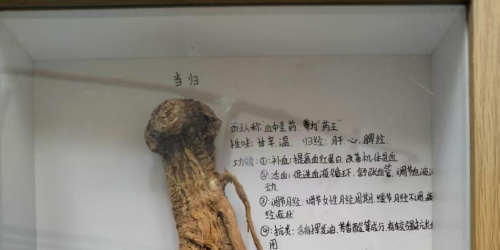 当归
西方人称"血中圣药,药王"
性味:甘辛,温 归经:肝、心、脾经
功效:①:补血:提高血红蛋白,改善机体造血
②:活血:促进血液循环、舒张血管、调节血液
动
③:调节月经:调节女性月经周期,缓节月经不调
经症状
④:抗炎:含有挥发油、阿魏酸等成分,有较强抗
用